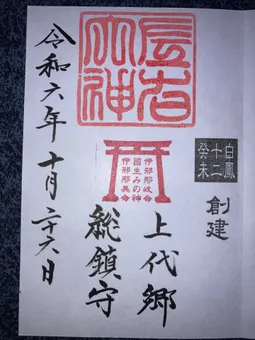 白鳳
十二
癸未
創建
伊邪那岐命
國生みの神
伊邪那美命
上代郷
総鎮守
令和六年十月二十六日